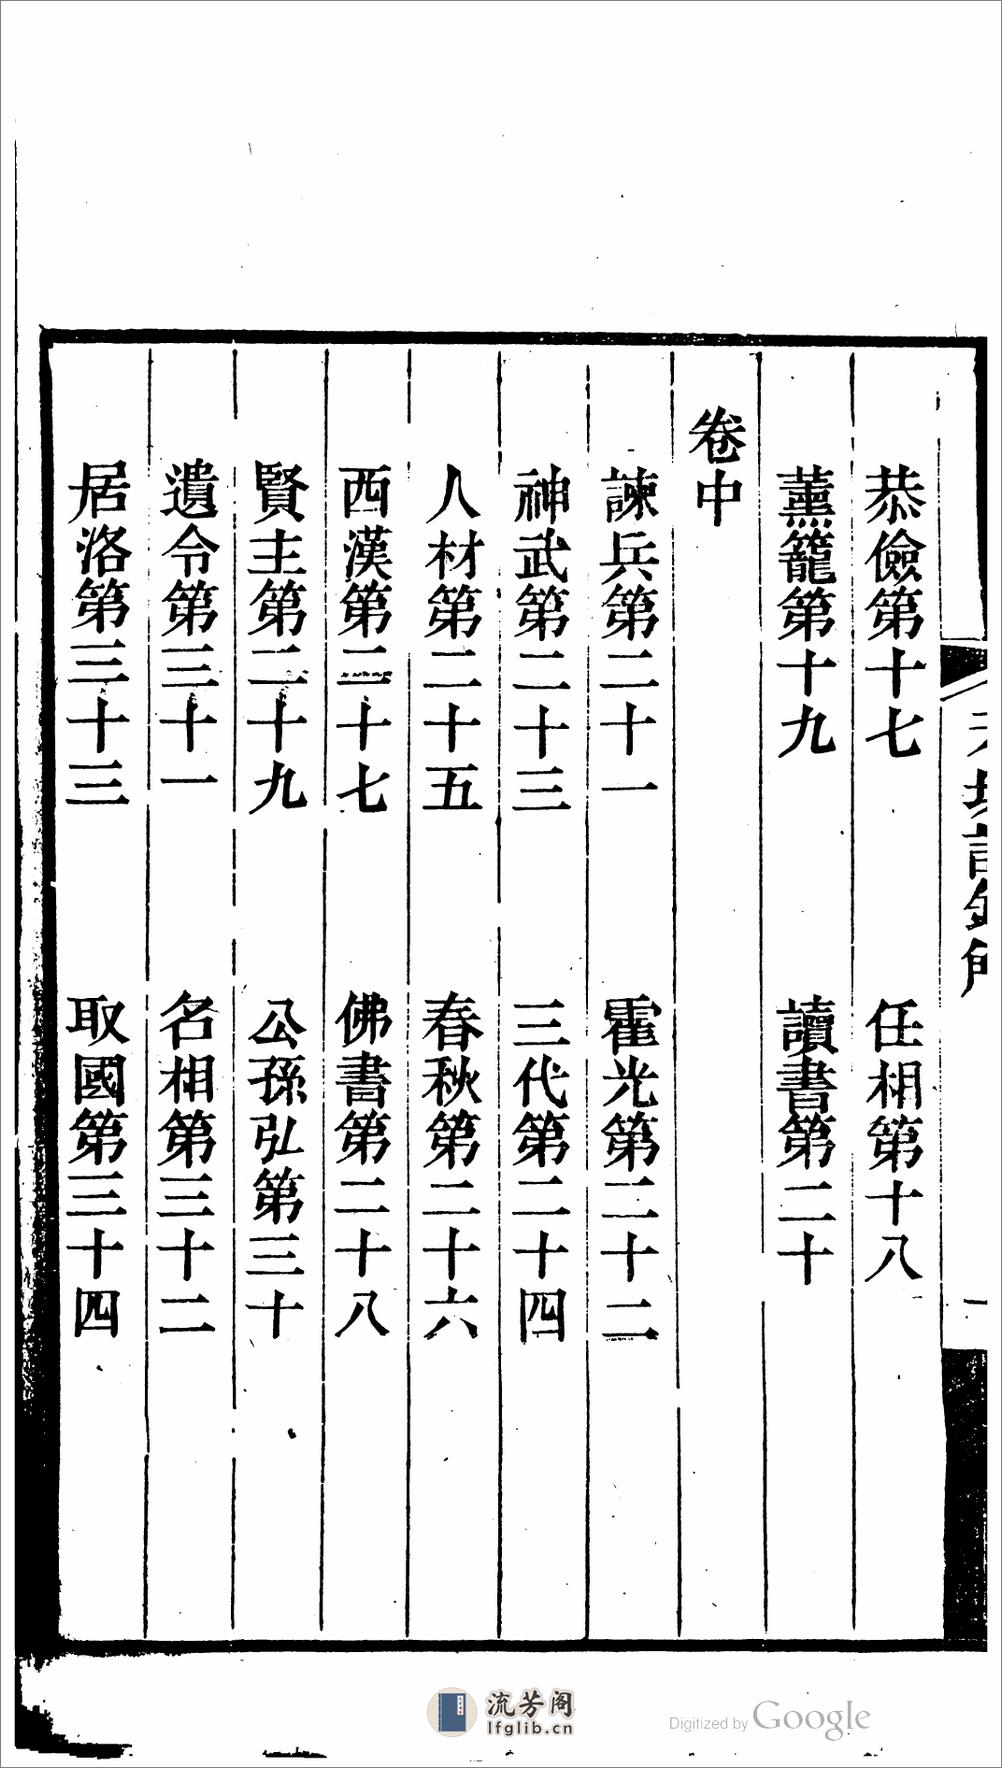 恭儉第十七　任相第十八
薰籠第十九　讀書第二十
卷中
諫兵第二十一　霍光第二十二
神武第二十三　三代第二十四
人材第二十五　春秋第二十六
西漢第二十七　佛書第二十八
賢主第二十九　公孫弘第三十
遺令第三十一　名相第三十二
居洛第三十三　取國第三十四
一
流芳阁
lfglib.cn
Digitized by Google